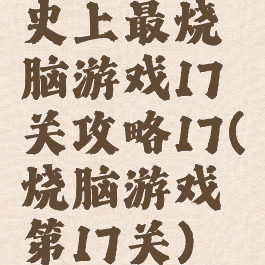 史上最烧
脑游戏17
关攻略17(
烧脑游戏
第17关)